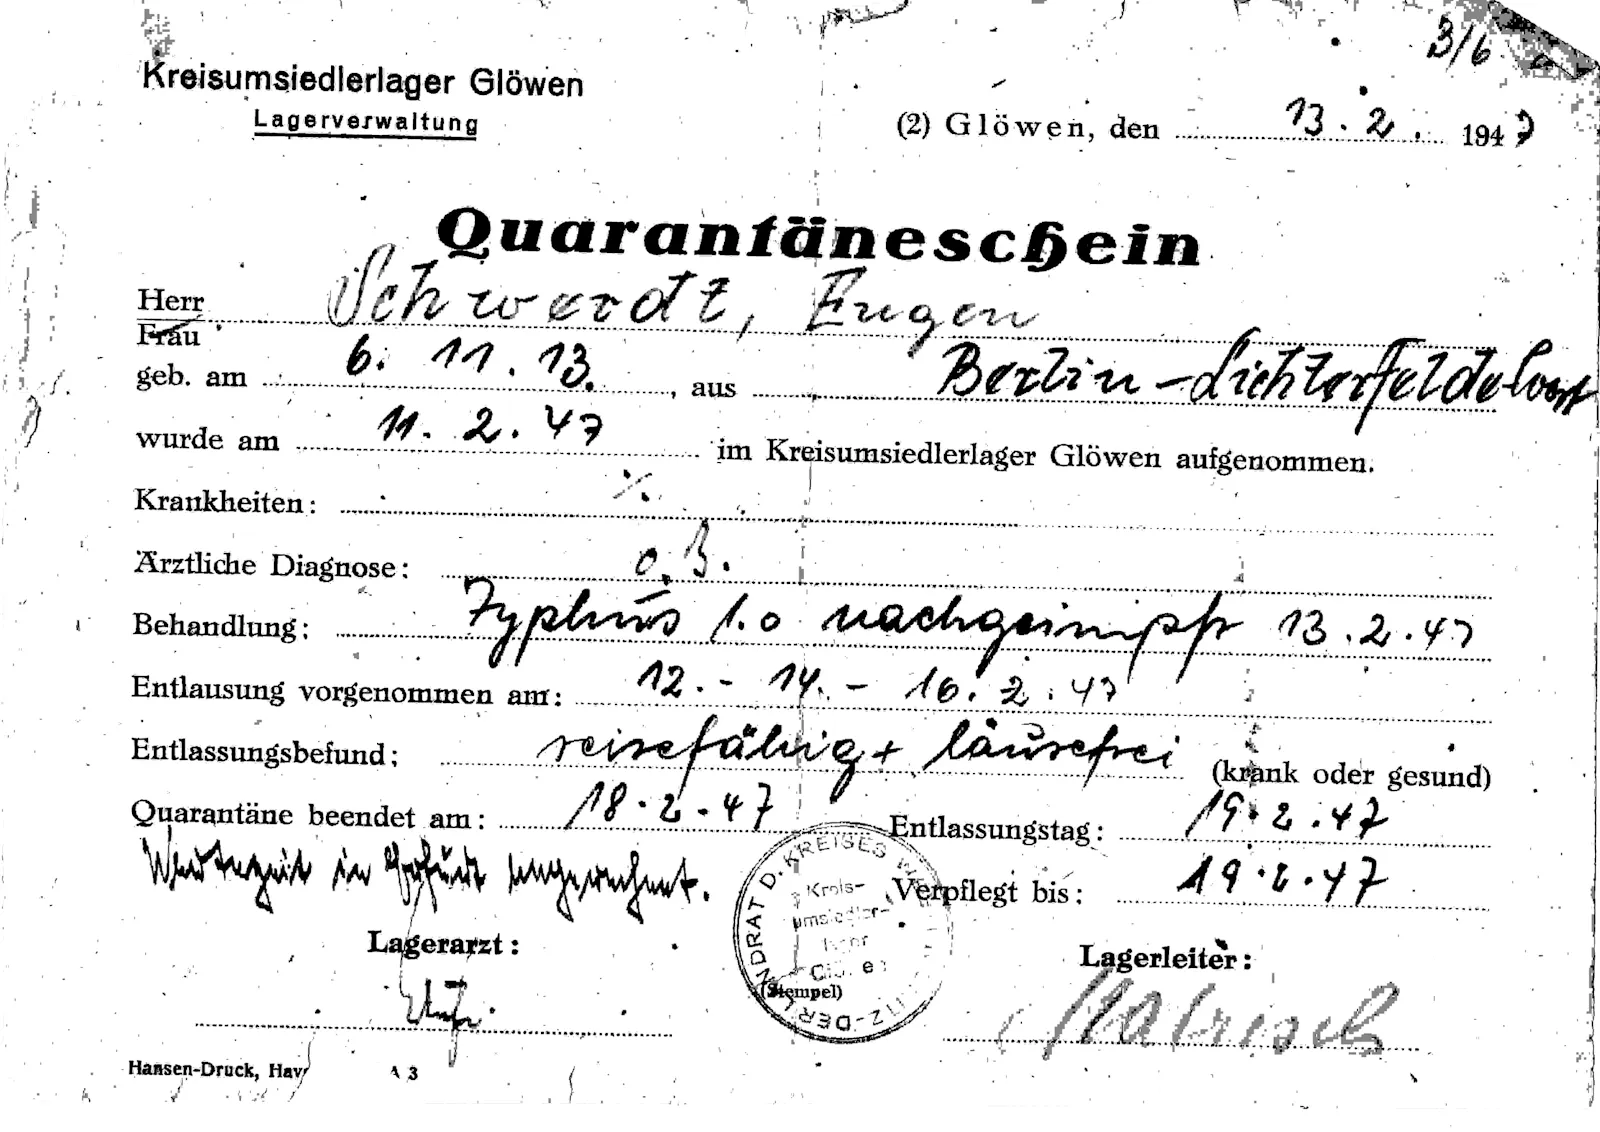 3/6
Kreisumsiedlerlager Glöwen
Lagerverwaltung
(2) Glöwen, den 13.2. 1947
Quarantäneschein
Herr Schwerdt, Eugen
Frau
geb. am 6.11.13. , aus Berlin-Lichterfelde West
wurde am 11.2.47 im Kreisumsiedlerlager Glöwen aufgenommen.
Krankheiten: ./.
Ärztliche Diagnose: o.B.
Behandlung: Typhus 1.0 nachgeimpft 13.2.47
Entlausung vorgenommen am: 12.-14.-16.2.47
Entlassungsbefund: reisefähig + läusefrei (krank oder gesund)
Quarantäne beendet am: 18.2.47 Entlassungstag: 19.2.47
Wartezeit in Erfurt angerechnet. Verpflegt bis: 19.2.47
Lagerarzt: Lagerleiter:
DER LANDRAT D. KREISES
Kreis-
umsiedler-
lager
Glöwen
(Stempel)
Hansen-Druck, Hav A 3